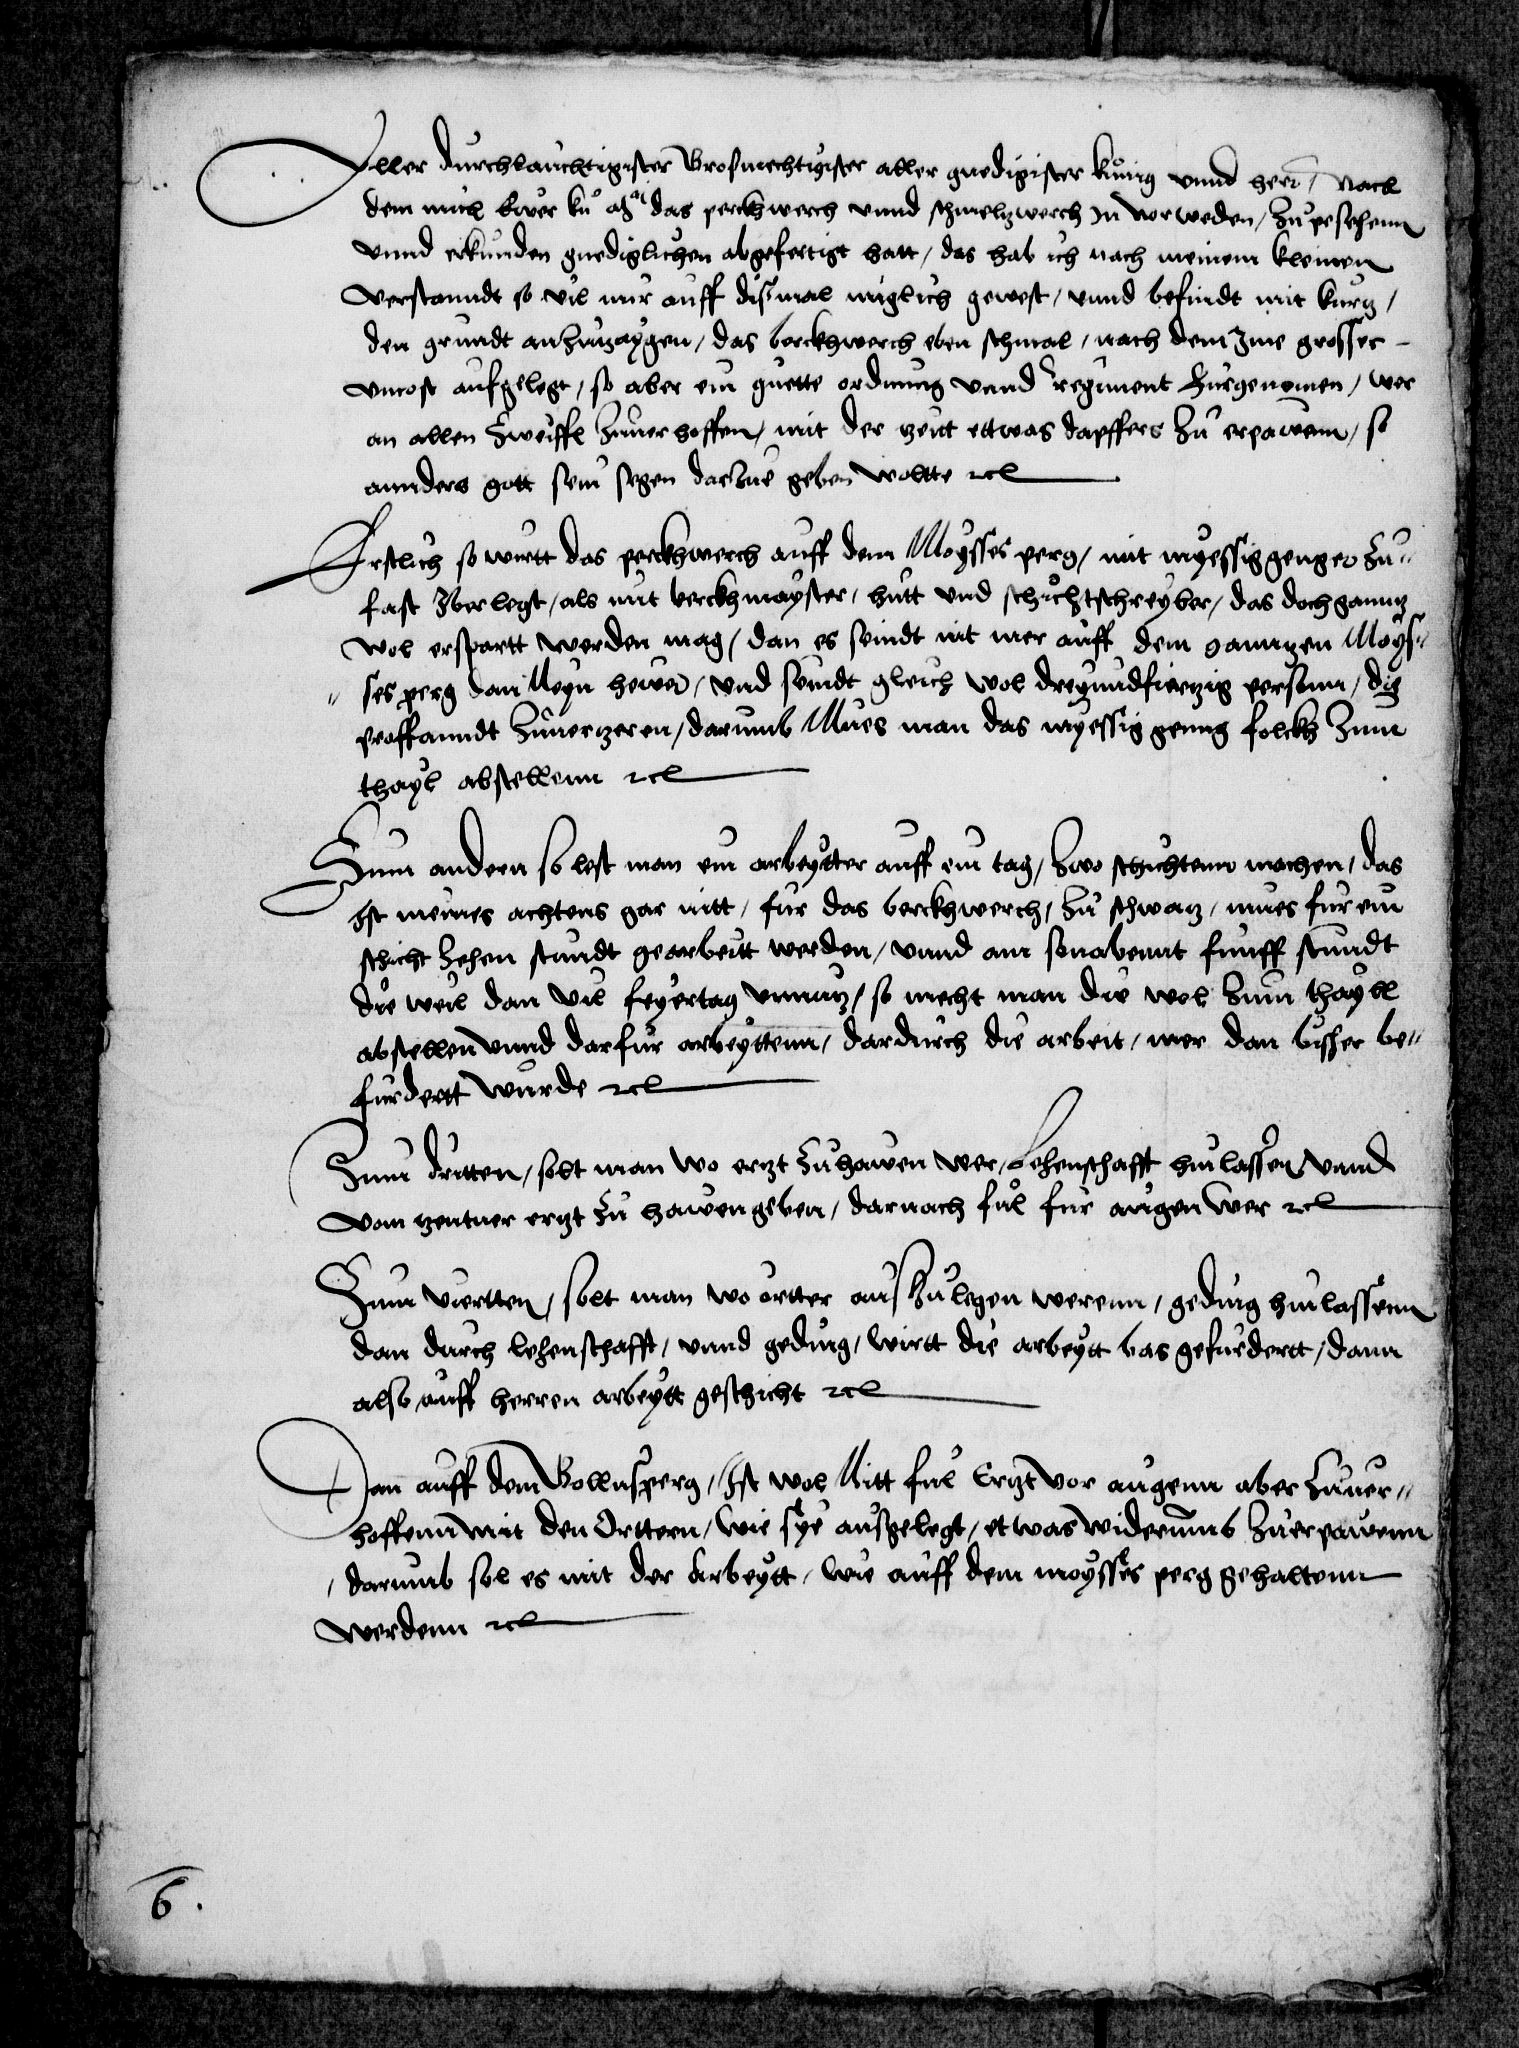 Aller durchlauchtigister Grosmechtigister aller gnedigister kunig vnnd herr, Nach
dem mich Ewer ku mt das perckhwerch vnnd schmeltzwerch In Norweden, zu besehenn
vnnd erkunden gnediglichen abgefertigt hatt, das hab ich nach meinem kleinen
verstanndt so vil mir auff dismal muglich gewest, vnnd befindt mit kurtz,
den grundt anzuzaygen, das berckhwerch eben schmal, nach dem Ime grosser
vncost aufgelegt, so aber ein guette ordnung vnnd regiment furgenomen, wer
an allen zweiffl zuuerhoffen, mit der zeit ettwas dapffers zu erpawenn, so
annders gott sein segen darzue geben woltte etc
Erstlich so wirtt das perckhwerch auff dem Moysses perg, mit myessiggenger zu„
fast Iberlegt, als mit berckhmayster, hutt vnd schichtschreyber, das doch ganntz
wol erspartt werden mag, dan es seindt nit mer auff dem ganntzen Moys„
„ses perg dan Neyn hewer, vnd seindt gleich wol dreyundfiertzig person, die
proffanndt zuuerzeren, darumb Mues man das myessig geng folckh zum
thayl abstellenn etc
Zum andern so lest man ein arbeytter auff ein tag, zwo schichtenn machen, das
Ist meines achtens gar nitt, fur das berckhwerch, zu schwatz, mues fur ein
schicht zehen stundt gearbeitt werden, vnnd am sonabennt funff stundt
die weil dan vil feyertag vnnutz, so mecht man die wol zum thayll
abstellen vnnd darfur arbeyttenn, dardurch die arbeit, mer dan bisher be„
furdertt wurde etc
Zum dritten, solt man wo ertzt zu hawen wer, Lehenschafft hinlassen vnnd
vom zentner ertzt zu hawen geben, darnach ful fur augen wer etc
Zum viertten, solt man wo ortter auszulegen werenn, geding hinlassenn
dan durch lehenschafft, vnnd geding, wirtt die arbeytt bas gefurdertt, dann
also auff herren arbeytt geschicht etc
Dan auff dem Gollnsperg, Ist wol Nitt ful Ertzt vor augenn aber zuuer„
hoffenn mit den Orttern, wie sye ausgelegt, etwas widerumb zuerpawenn
, darumb sol es mit der Arbeytt, wie auff dem moysses perg gehaltenn
werdenn etc
6.